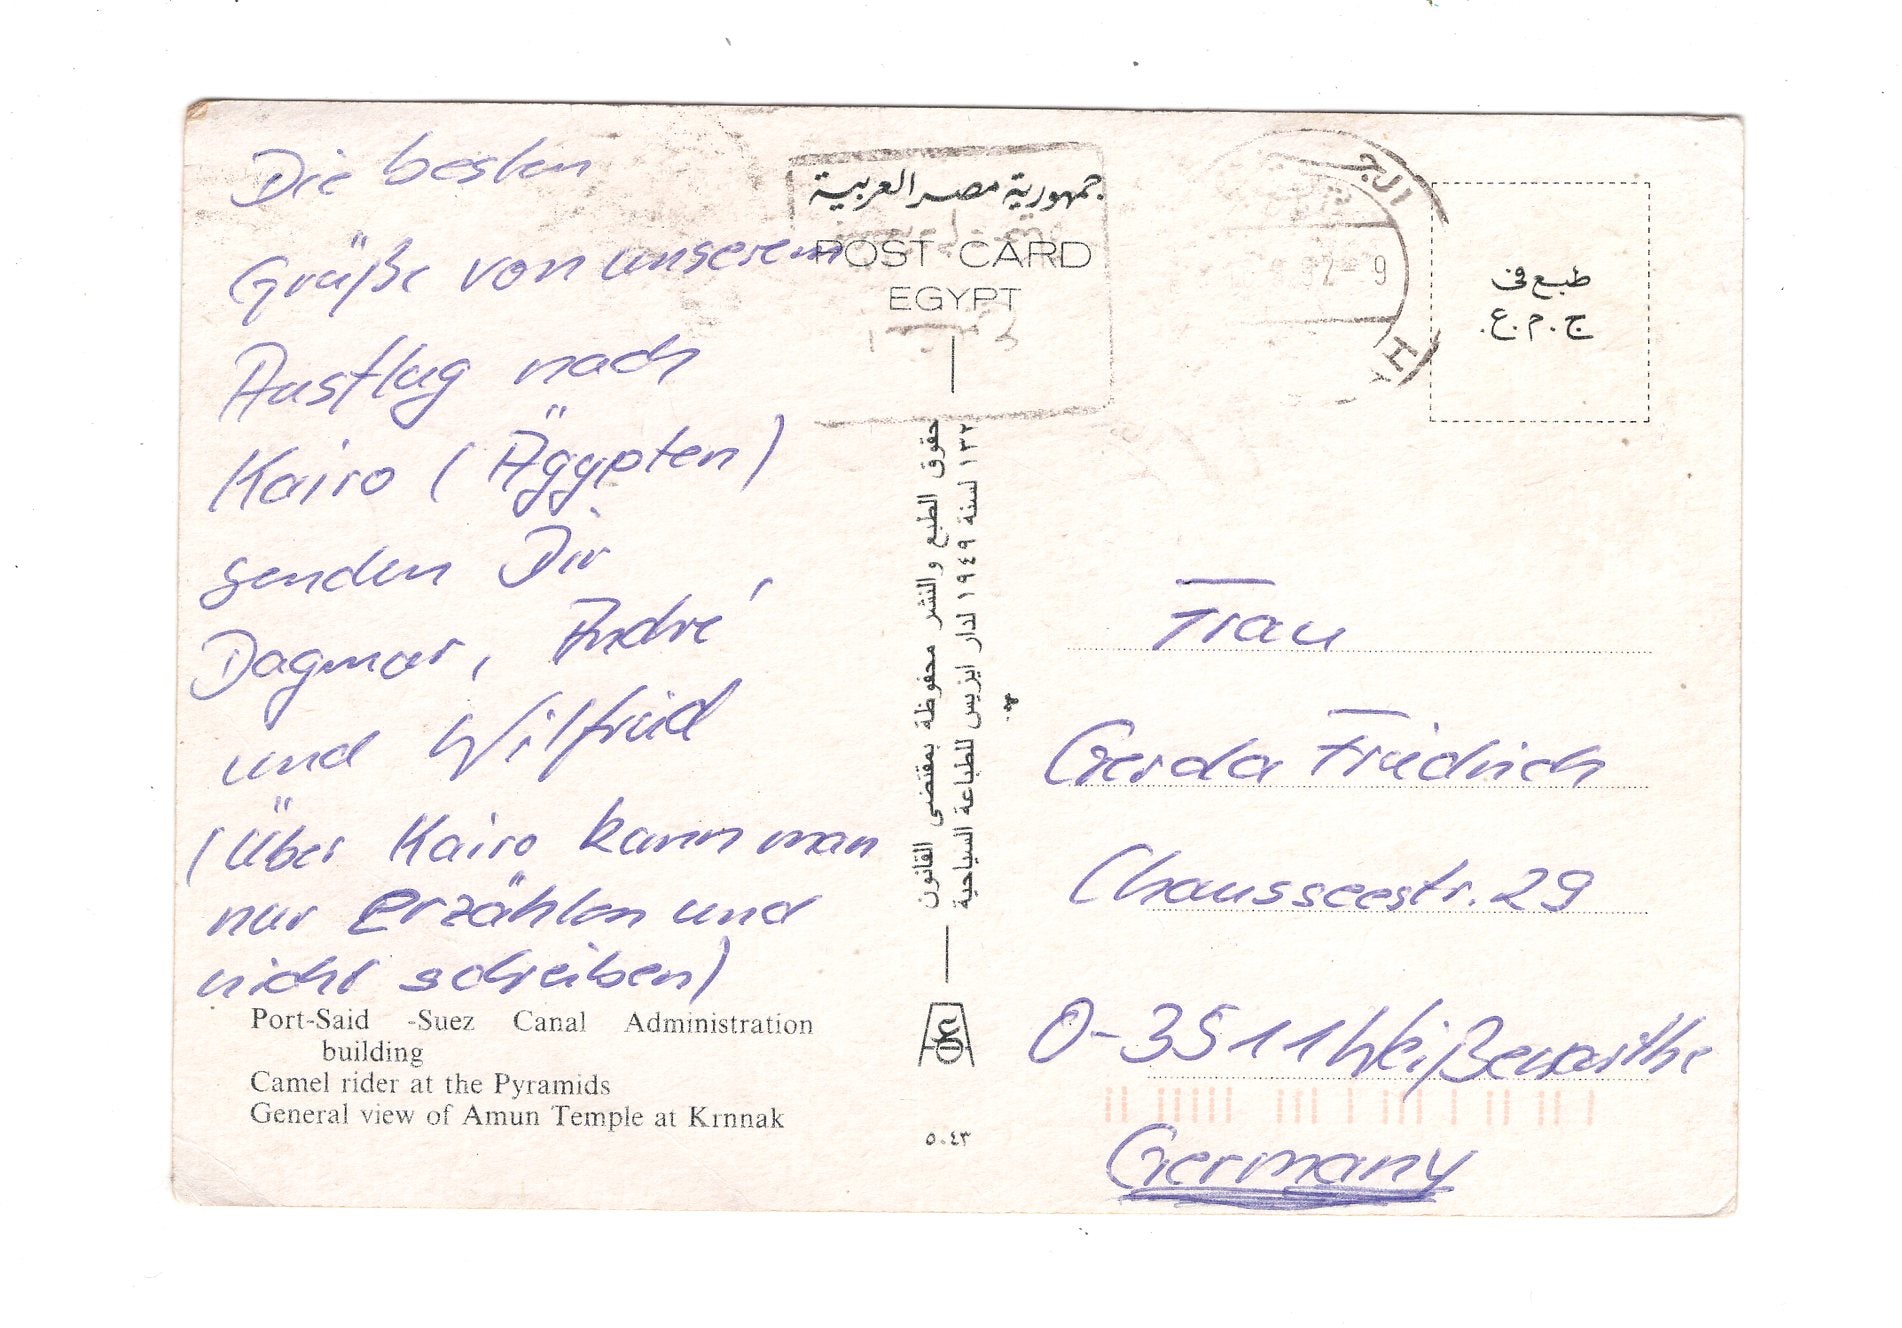 Die besten
Grüße von unserem
Ausflug nach
Kairo (Ägypten)
senden Dir
Dagmar, André,
und Wilfried
(Über Kairo kann man
nur erzählen und
nicht schreiben)
Port-Said -Suez Canal Administration
building
Camel rider at the Pyramids
General view of Amun Temple at Krnnak
جمهورية مصر العربية
POST CARD
EGYPT
حقوق الطبع والنشر محفوظة بمقتضى القانون
١٣٢ لسنة ١٩٤٩ لدار ايزيس للطباعة السياحية
٥٠٤٣
92- 9
طبع في
ج.م.ع.
Frau
Gerda Friedrich
Chausseestr. 29
O-3511 Weißewarthe
Germany